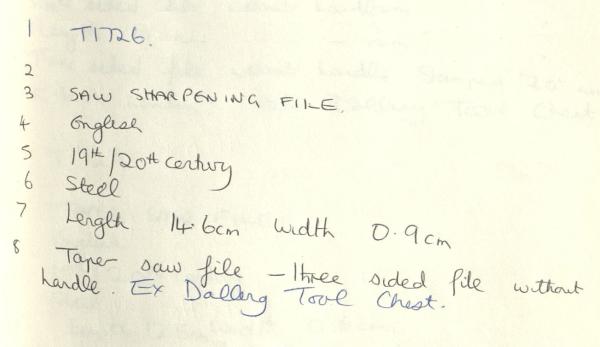 1 T1726.
2
3 SAW SHARPENING FILE.
4 English
5 19th/20th century
6 Steel
7 Length 14.6cm width 0.9cm
8 Taper saw file - three sided file without
handle. Ex Dalling Tool Chest.